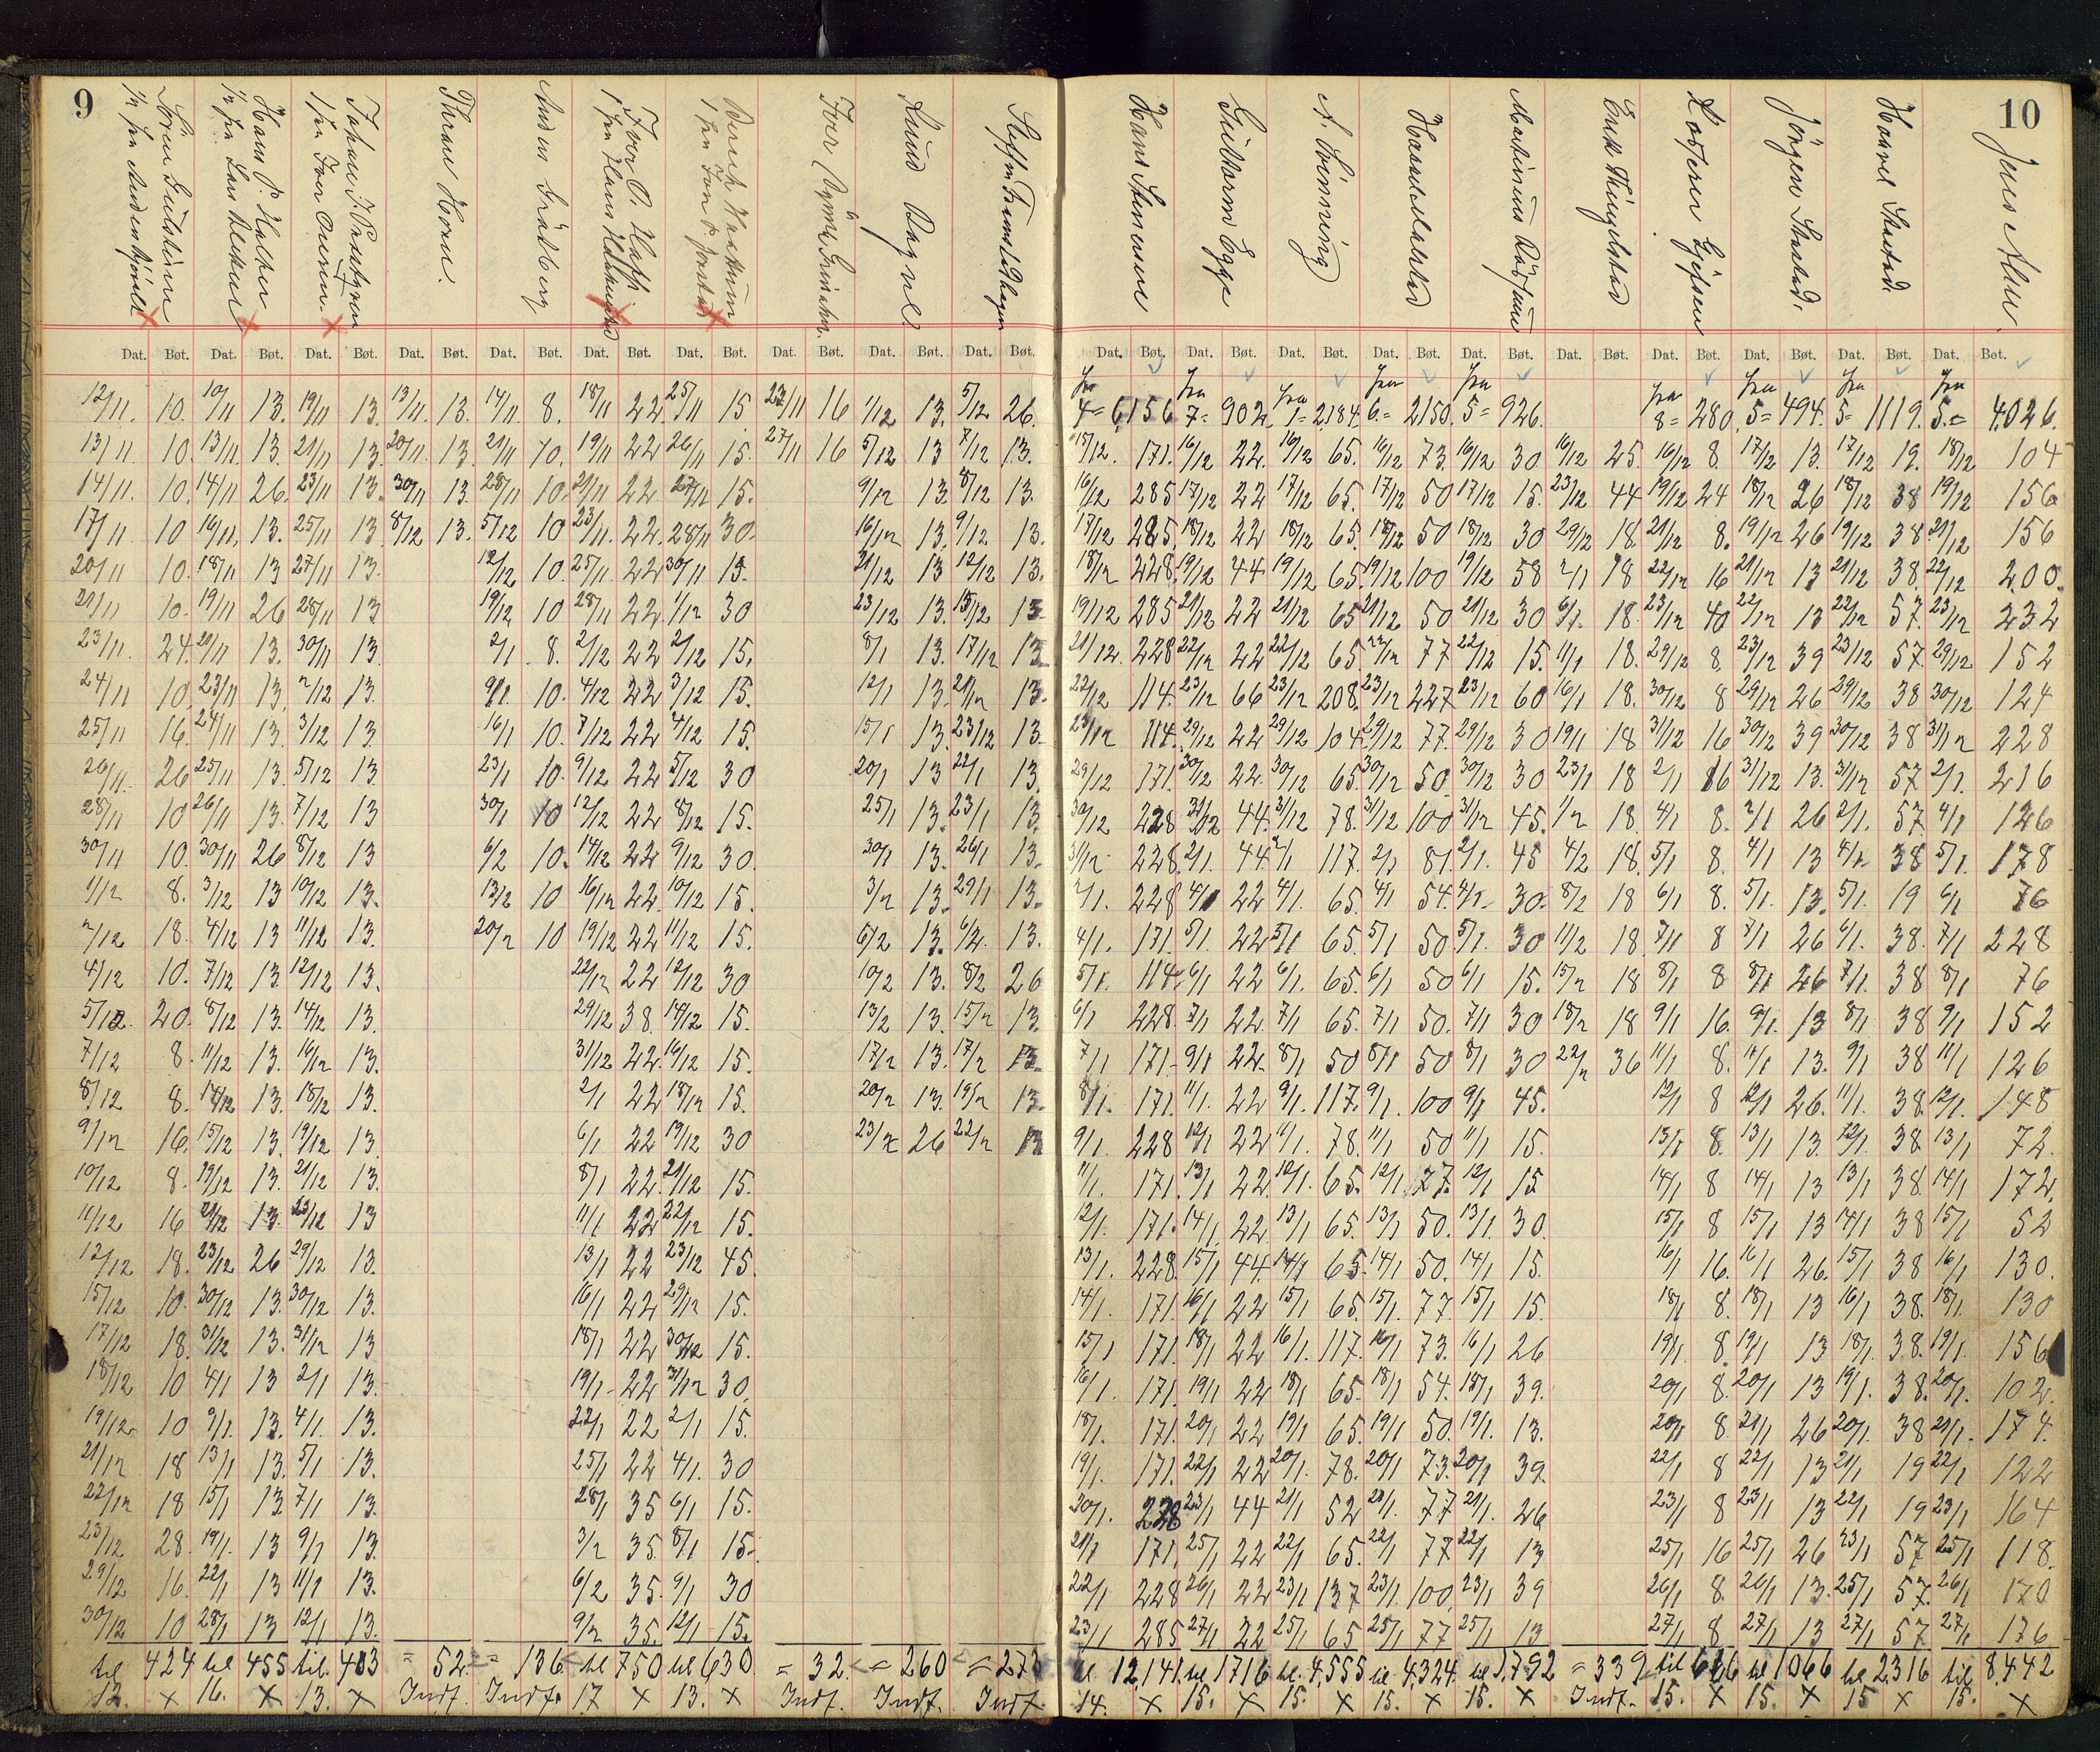 9
Hans P. Halber
Thrane Horn.
Knud Bagne.
Hans Stensener
A. Svenning
Jørgen Skalstad.
10
Dat. Bøt. Dat. Bøt. Dat. Bøt. Dat. Bøt. Dat. Bøt. Dat. Bøt. Dat. Bøt. Dat. Bøt. Dat. Bøt. Dat. Bøt.
Dat. Bøt. Dat. Bøt. Dat. Bøt. Dat. Bøt. Dat. Bøt. Dat. Bøt. Dat. Bøt. Dat. Bøt. Dat. Bøt. Dat. Bøt.
12/11. 10. 10/11 13. 19/11 13. 13/11. 13. 14/11 8. 18/11 22. 25/11 15 23/11 16 1/12 13. 5/12 26.
13/11 10. 13/11. 13. 21/11 13. 20/11. 13. 21/11 10. 19/11 22 26/11 15. 27/11 16 5/12 13 7/12 13.
14/11. 10. 14/11 26. 23/11 13. 30/11 13. 28/11 10. 21/11 22 27/11 15. 9/12 13. 8/12 13.
17/11 10 16/11. 13. 25/11 13 8/12 13. 5/12 10 23/11. 22. 28/11 30. 16/12 13. 9/12 13.
20/11 10. 18/11 13 27/11 13. 12/12 10. 25/11. 22 30/11 15. 21/12 13 12/12 13.
21/11 10. 19/11 26 28/11 13 19/12 10 28/11 22. 1/12 30 23/12 13. 15/12 13.
23/11. 24. 21/11 13. 30/11 13. 2/1 8. 2/12 22 2/12 15. 8/1 13. 17/12 13.
24/11 10. 23/11 13. 2/12 13. 9/1. 10. 4/12 22 3/12 15. 12/1 13. 21/12 13.
25/11 16. 24/11 13. 3/12 13. 16/1 10. 7/12 22 4/12 15. 15/1 13. 23/12 13.
26/11. 26 25/11 13. 5/12 13. 23/1 10. 9/12 22 5/12 30 20/1 13 22/1 13.
28/11 10 26/11 13. 7/12 13 30/1 10 12/12 22 8/12 15. 25/1 13. 23/1 13.
30/11 10. 30/11 26 8/12 13 6/2 10. 14/12 22 9/12 30. 30/1 13. 26/1 13.
1/12 8. 3/12 13 10/12 13. 13/2 10 16/12 22. 10/12 15. 3/2 13. 29/1 13.
2/12 18. 4/12 13 11/12 13. 20/2 10 19/12 22 11/12 15. 6/2 13. 6/2. 13.
4/12 10. 7/12 13 12/12 13. 22/12 22 12/12 30 10/2 13. 8/2 26
5/12. 20. 8/12 13. 14/12 13. 29/12 38. 14/12 15. 13/2 13. 15/2 13.
7/12 8. 11/12 13. 16/12 13. 31/12 22. 16/12 15. 17/2 13. 17/2 13.
8/12 8. 14/12 13. 18/12 13. 2/1 22 18/12 15. 20/2 13. 19/2 13.
9/12 16. 15/12 13. 19/12 13. 6/1 22 19/12 30 23/2 26 22/2 13
10/12 8. 19/12 13. 21/12 13. 8/1 22. 21/12 15.
11/12 16 21/12 13. 23/12 13 11/1 22 22/12 15.
12/12 18. 23/12 26 29/12 13. 13/1 22 23/12 45.
15/12 10. 30/12 13. 30/12 13. 16/1 22 29/12 15.
17/12 18. 31/12 13. 31/12 13 18/1 22 30/12 15.
18/12 10 4/1 13 2/1 13. 19/1 22 31/12 30.
19/12 10 9/1. 13. 4/1. 13. 22/1 22 2/1 15.
21/12 18 13/1 13. 5/1 13. 25/1 22 4/1. 30
22/12 18 15/1 13. 7/1 13. 28/1 35 6/1 15.
23/12 28. 19/1. 13 9/1 13. 3/2 35. 8/1 15.
29/12 16. 22/1 13 11/1 13. 6/2 35. 9/1 30
30/12 10 28/1 13 12/1 13. 9/2 35. 12/1 15.
til 424 til 455 til. 403 = 52 = 136 til 750 til 630 = 32. = 260 = 273
12. x 16. x 13. x Indf. Indf. 17 x 13. x Indf. Indf. Indf.
fra fra fra fra fra fra fra fra fra
4= 6,156 7= 902. 1= 2,184. 6.= 2150. 5= 926. 8= 280. 5= 494. 5= 1119. 5.= 4.026.
15/12. 171. 16/12 22. 16/12 65. 16/12 73. 16/12 30 16/12 25. 16/12 8. 17/12 13. 17/12 19. 18/12 104
16/12 285 17/12 22 17/12 65. 17/12 50 17/12 15. 23/12 44 19/12 24 18/12 26 18/12 38 19/12 156
17/12 285 18/12 22 18/12 65. 18/12 50 18/12 30 29/12 18. 21/12 8. 19/12 26 19/12 38 21/12 156
18/12 228. 19/12 44 19/12 65. 19/12 100 19/12 58 2/1 18 22/12 16 21/12 13 21/12 38. 22/12 200.
19/12 285 21/12 22 21/12 65 21/12 50 21/12 30 6/1. 18. 23/12 40 22/12 13 22/12 57. 23/12 232
21/12. 228 22/12 22 22/12 65. 22/12 77 22/12 15. 11/1 18. 29/12 8. 23/12 39 23/12 57. 29/12 152
22/12 114. 23/12 66 23/12 208. 23/12 227 23/12 60 16/1 18. 30/12 8 29/12 26 29/12 38 30/12 124
23/12 114. 29/12 22 29/12 104. 29/12 77. 29/12 30 19/1 18 31/12 16 30/12 39 30/12 38 31/12 228
29/12 171. 30/12 22. 30/12 65. 30/12 50 30/12 30 23/1 18 2/1 16 31/12 13. 31/12 57 2/1. 216
30/12 228 31/12 44. 31/12 78. 31/12 100 31/12 45. 1/2 18. 4/1 8. 2/1 26 2/1. 57. 4/1 126
31/12 228. 2/1. 44. 2/1 117. 2/1 81. 2/1. 45 4/2 18. 5/1 8. 4/1 13 4/1 38 5/1. 178
2/1. 228 4/1 22 4/1. 65. 4/1 54. 4/1 30. 8/2 18 6/1 8. 5/1. 13. 5/1. 19 6/1 76
4/1. 171. 5/1. 22 5/1 65. 5/1 50. 5/1. 30 11/2 18. 7/1 8 7/1 26 6/1. 38. 7/1 228
5/1. 114. 6/1 22 6/1. 65. 6/1 50 6/1 15. 15/2 18 8/1 8 8/1 26 7/1. 38 8/1 76
6/1 228. 7/1 22. 7/1 65. 7/1 50. 7/1 30 18/2 18 9/1 16. 9/1. 13 8/1 38 9/1 152
7/1 171. 9/1 22. 8/1 50 8/1 50 8/1 30 22/2 36 11/1 8. 11/1 13. 9/1 38 11/1 126
8/1. 171. 11/1. 22 9/1. 117. 9/1. 100 9/1 45. 12/1 8 12/1 26. 11/1. 38. 12/1. 148
9/1. 228 12/1 22 11/1. 78. 11/1 50 11/1 15. 13/1 8. 13/1 13. 12/1. 38 13/1 72.
11/1. 171. 13/1 22. 12/1. 65. 12/1 77. 12/1 15 14/1 8 14/1 13 13/1 38. 14/1 172.
12/1. 171. 14/1. 22 13/1 65. 13/1 50. 13/1. 30. 15/1 8 15/1 13 14/1 38 15/1 52
13/1. 228. 15/1 44. 14/1 65. 14/1 50. 14/1 15. 16/1 16. 16/1 26. 15/1 38 16/1 130.
14/1. 171. 16/1 22 15/1 65. 15/1. 77. 15/1 15. 18/1 8. 18/1 13 16/1 38. 18/1. 130
15/1 171. 18/1 22 16/1. 117. 16/1 73. 16/1 26 19/1. 8. 19/1 13 18/1. 38. 19/1. 156
16/1. 171. 19/1 22 18/1 65. 18/1 54. 18/1 39. 20/1 8. 20/1 13 19/1. 38. 20/1. 102.
18/1. 171. 20/1 22 19/1 65. 19/1 50. 19/1. 13. 20/1 8. 21/1 26 20/1. 38 21/1. 174.
19/1. 171. 22/1 22 20/1. 78. 20/1 73. 20/1 39. 22/1 8 22/1 13 21/1 19 22/1 122
20/1. 228 23/1 44 21/1 52 21/1. 77 21/1. 26 23/1 8 23/1 13 22/1 19 23/1 164
21/1 171. 25/1 22 22/1 65. 22/1 77 22/1 13 25/1 16 25/1 26 23/1 57 25/1 118.
22/1 228 26/1 22 23/1 137 23/1 100. 23/1 39 26/1 8. 26/1 13. 25/1 57. 26/1 170
23/1 285 27/1 22 25/1 65 25/1 77 25/1 13 27/1 8 27/1 13 27/1 57 27/1 176
til 12,141. til 1716 til. 4,555 til 4,324 til 1,792 = 339 til 666 til 1066 til 2316 til 8,442
14. x 15. x 15. x 15. x 15. x Indf. 15. x 15. x 15 x 15. x